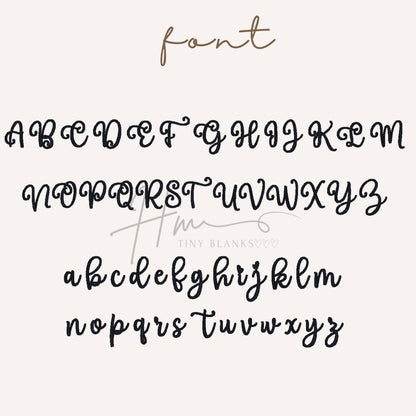 font
ABCDEFGHIJKLM
NOPQRSTUVWXYZ
Hm
TINY BLANKS♡♡♡
abcdefghijklm
nopqrstuvwxyz